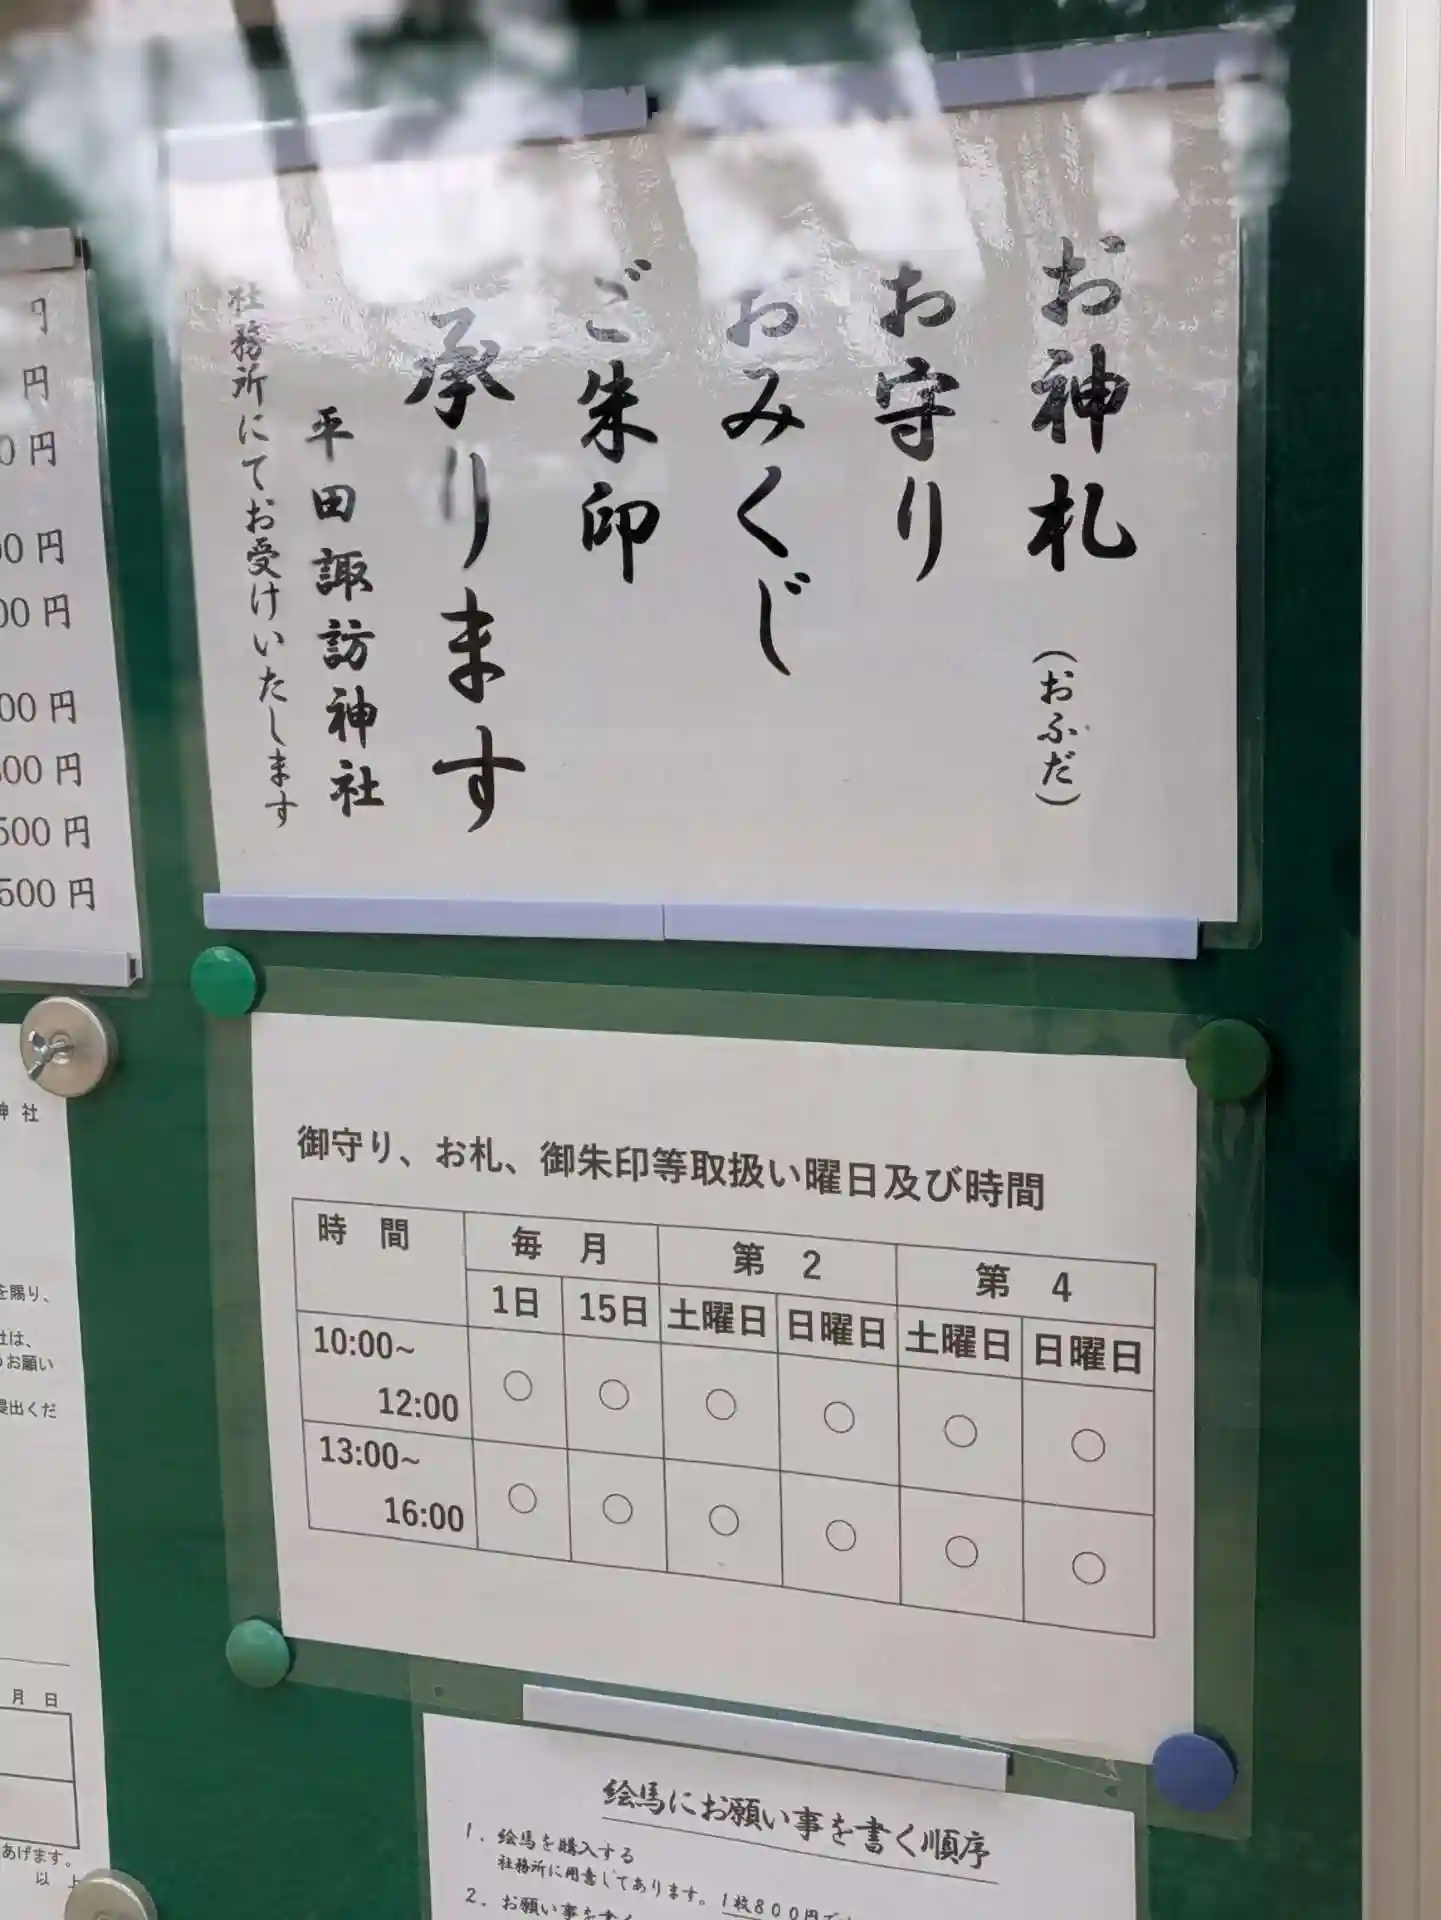 お神札（おふだ）
お守り
おみくじ
ご朱印
承ります
平田諏訪神社
社務所にてお受けいたします
円
円
0円
00円
00円
00円
500円
500円
御守り、お札、御朱印等取扱い曜日及び時間
時 間 毎 月 第 2 第 4
1日 15日 土曜日 日曜日 土曜日 日曜日
10:00~
12:00 ○ ○ ○ ○ ○ ○
13:00~
16:00 ○ ○ ○ ○ ○ ○
神 社
を賜り、
社は、
お願い
提出くだ
月 日
あげます。
以
絵馬にお願い事を書く順序
1. 絵馬を購入する
社務所に用意してあります。1枚800円で
2. お願い事を書く